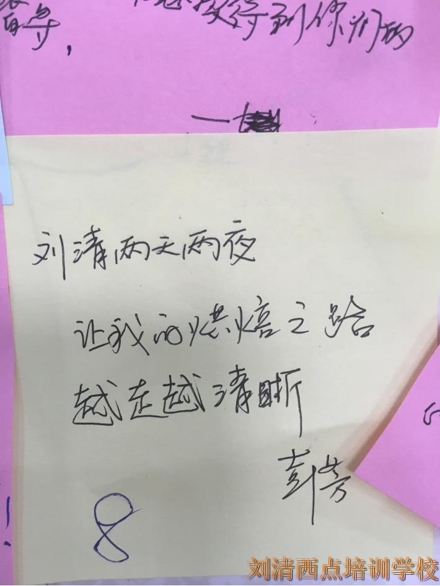 得到你们的
刘清两天两夜
让我的烘焙之路
越走越清晰
彭芳
8
刘清西点培训学校